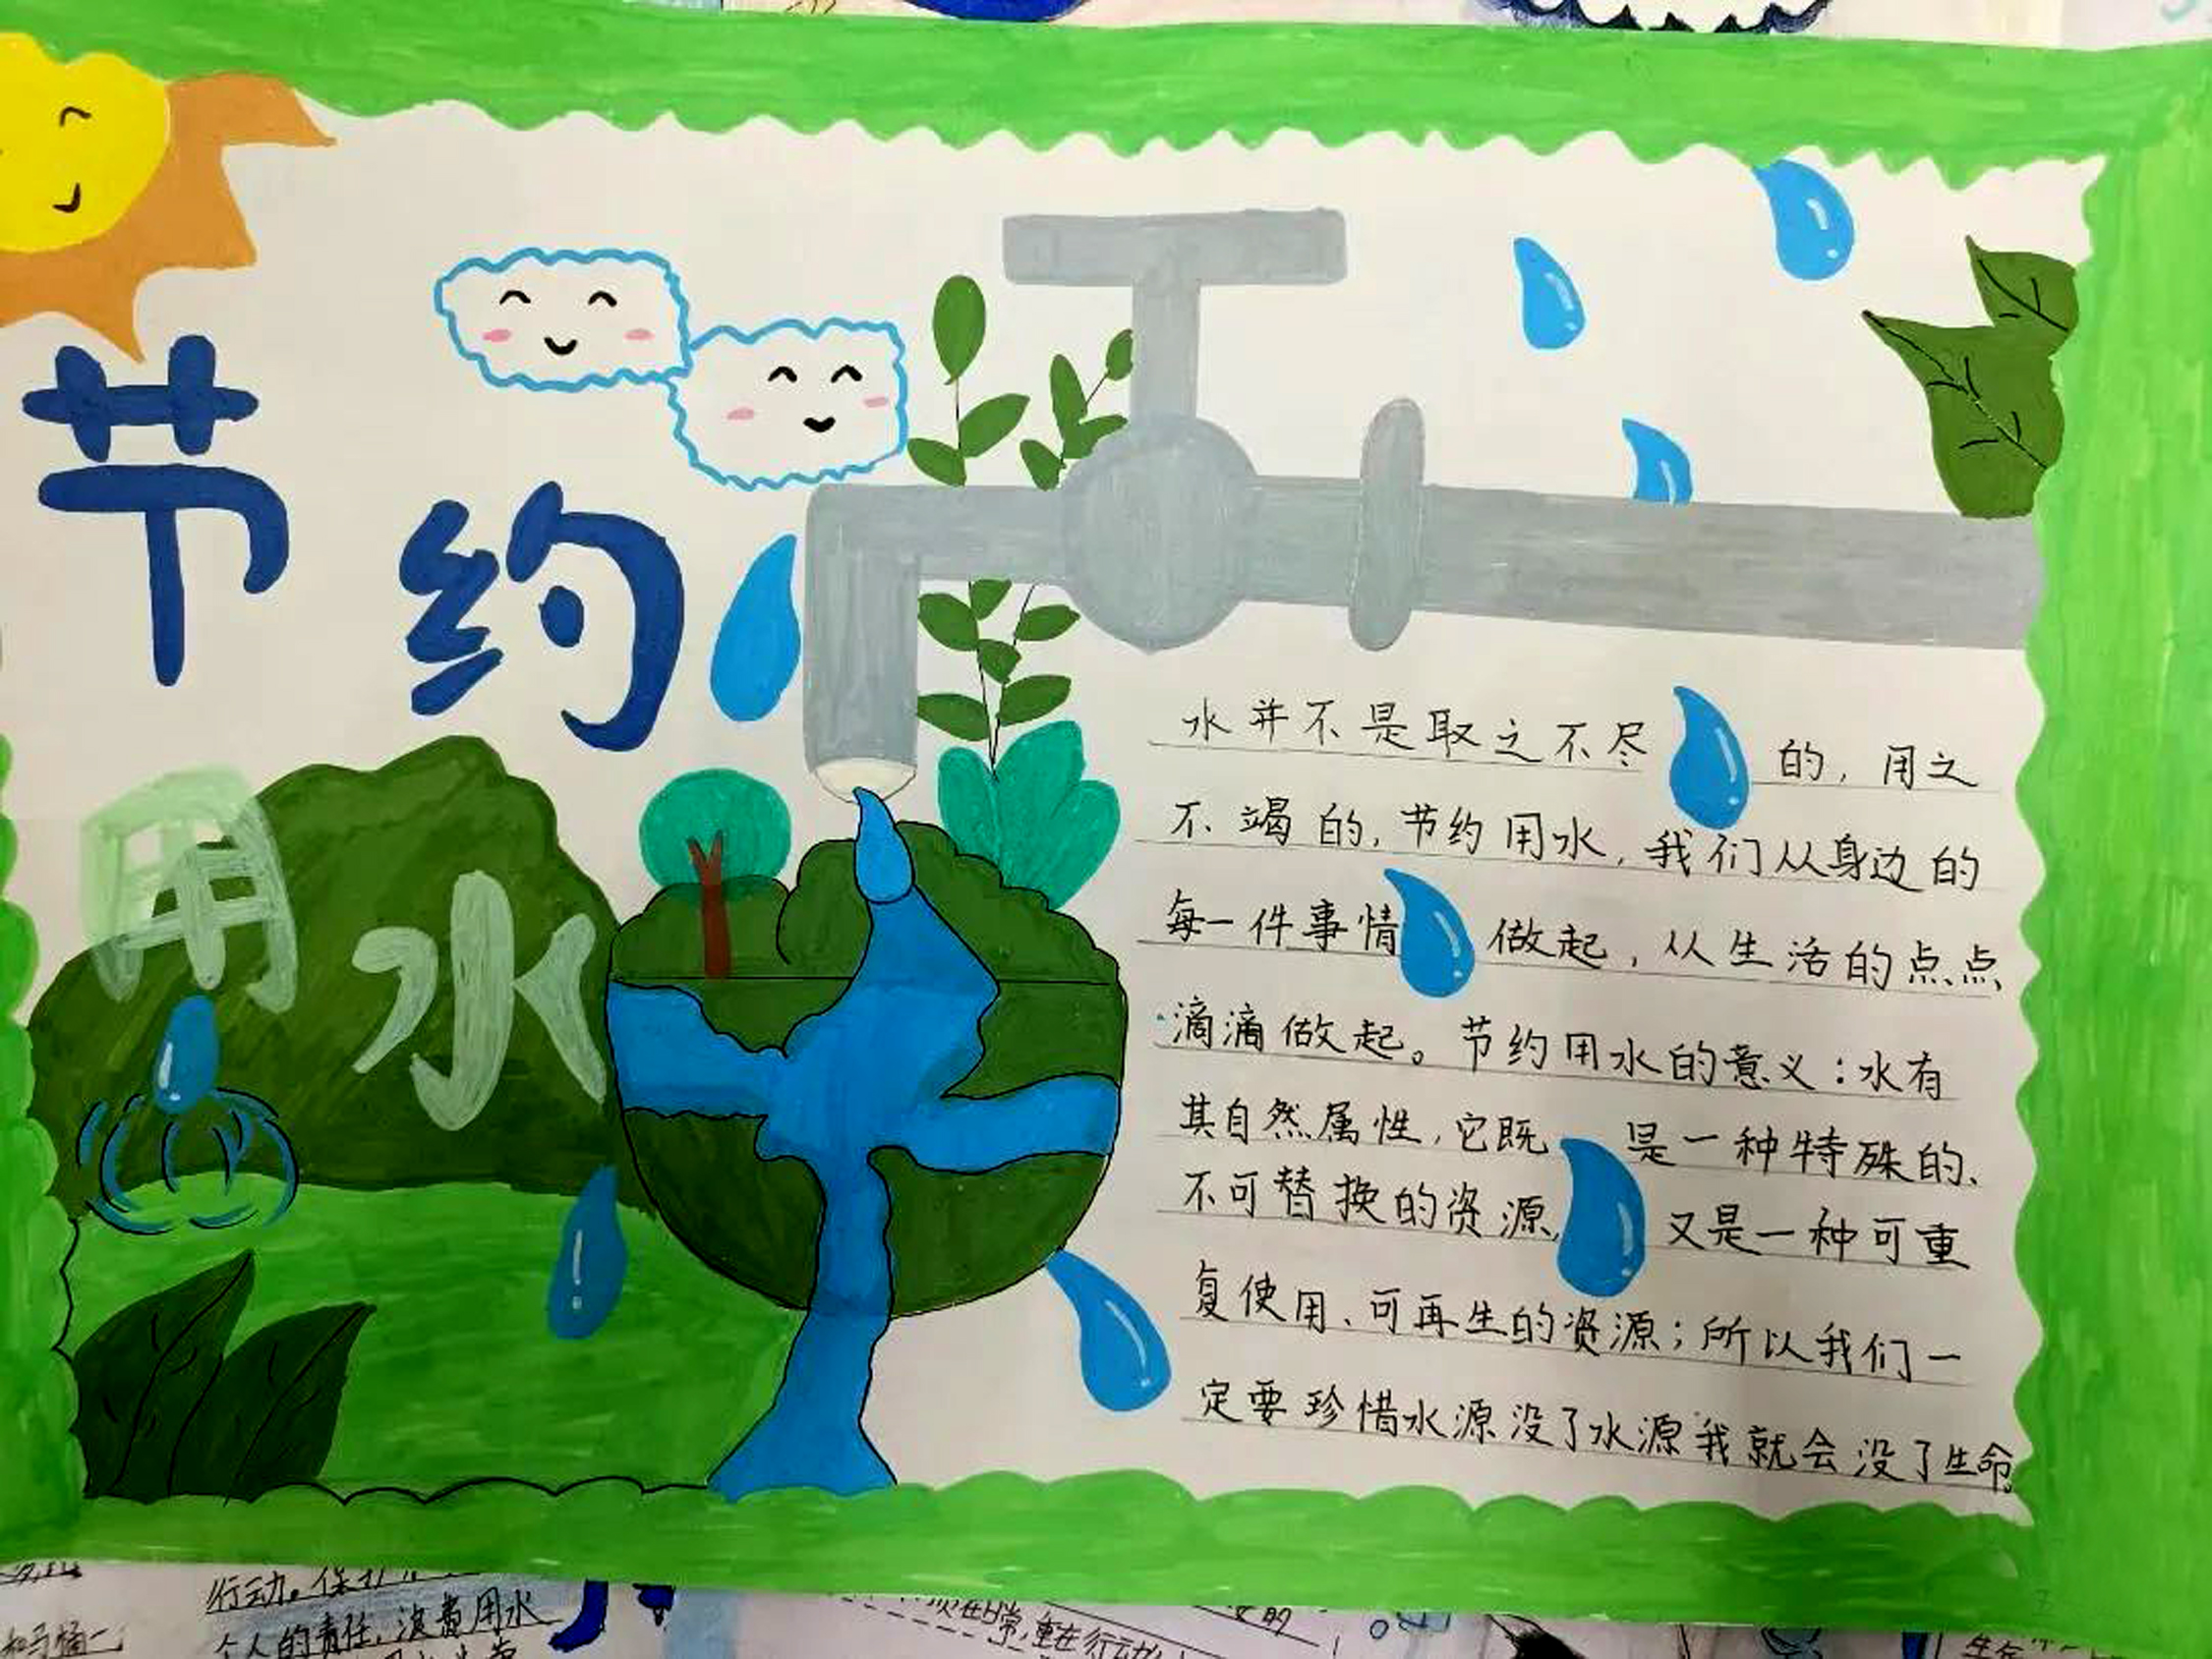 节约
用水
水并不是取之不尽的，用之
不竭的，节约用水，我们从身边的
每一件事情做起，从生活的点点
滴滴做起。节约用水的意义：水有
其自然属性，它既是一种特殊的、
不可替换的资源，又是一种可重
复使用、可再生的资源；所以我们一
定要珍惜水源没了水源我就会没了生命。
行动。保护
个人的责任，浪费用水
在日常，重在行动